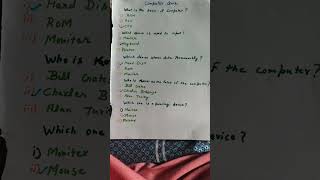 Computer Quiz
What is the brain of Computer?
i) RAM
ii)
iii) CPU
What device is used to input?
i) Monitor
Keyboard
Printer
Which device stores data Permanently?
i) Hard Disk
ii) ROM
iii) Monitor
Who is known as the father of the computer?
i) Bill Gates
ii) Charles Babbage
iii) Alan Turing
Which one is a pointing device?
i) Monitor
ii) Mouse
Hard Dis
ii) ROM
iii) Monitor
Who is
of the computer?
i) Bill Gate
Charles B
iii) Alan Turi
Which one
device?
i) Monitor
Mouse